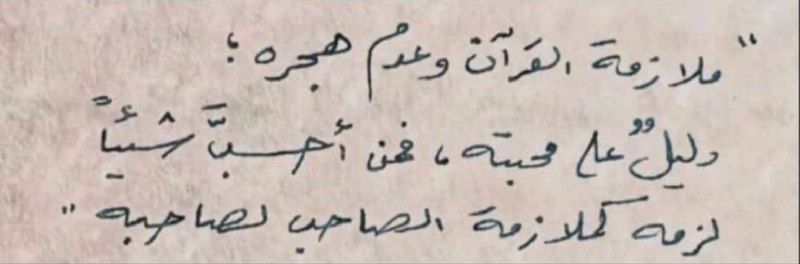 " ملازمة القرآن وعدم هجره ؛
دليلٌ على محبته ، فمن أحبَّ شيئاً
لزمه كملازمة الصاحب لصاحبه "